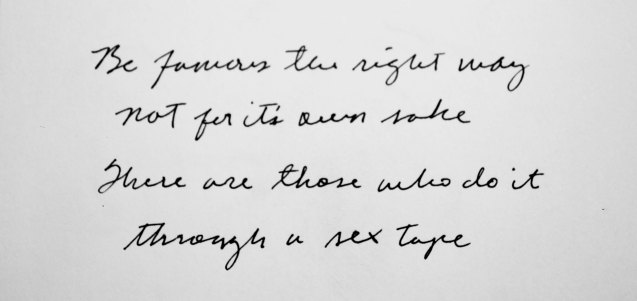 Be famous the right way
not for it's own sake
There are those who do it
through a sex tape